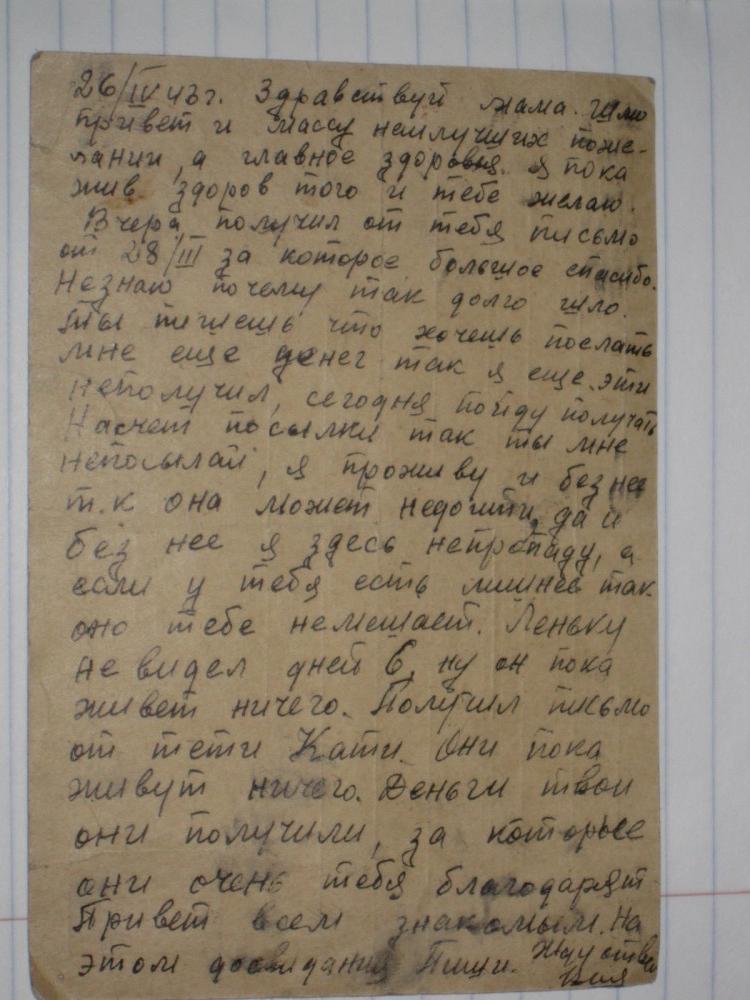 26/IV 43г. Здравствуй мама. Шлю
привет и массу наилучших поже-
ланий, а главное здоровья. Я пока
жив здоров того и тебе желаю.
Вчера получил от тебя письмо
от 28/III за которое большое спасибо.
Незнаю почему так долго шло.
Ты пишешь что хочешь послать
мне еще денег так я еще эти
неполучил, сегодня пойду получать
Насчет посылки так ты мне
непосылай, я проживу и без нее
т.к она может недойти, да и
без нее я здесь непропаду, а
если у тебя есть лишнее так
оно тебе немешает. Леньку
не видел дней 6, ну он пока
живет ничего. Получил письмо
от тети Кати. Они пока
живут ничего. Деньги твои
они получили, за которые
они очень тебя благодарят
Привет всем знакомым. На
этом досвидания Пиши. Жду ответ